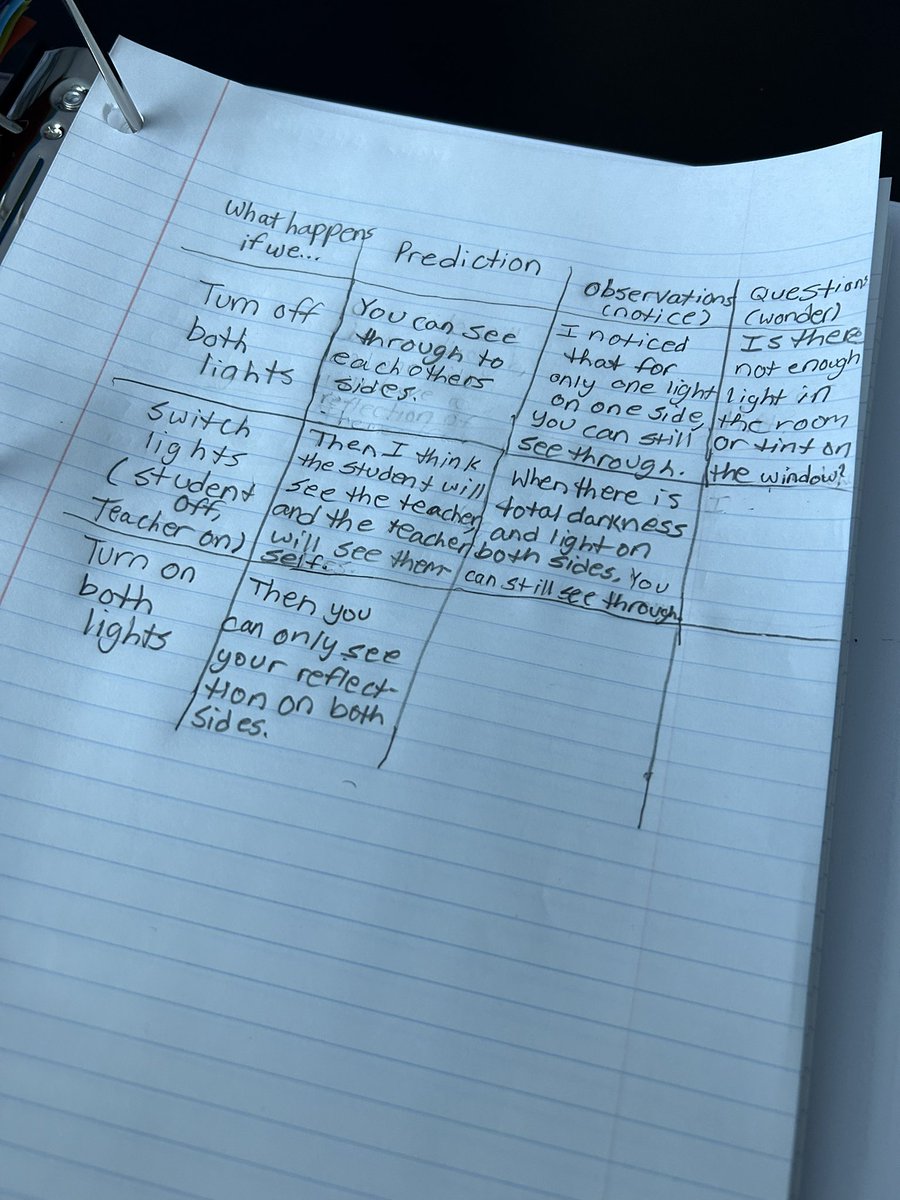 What happens
if we...
Prediction
Observations
(notice)
Questions
(wonder)
Turn off
both
lights
You can see
through to
each others
sides.
I noticed
that for
only one light
on one side,
you can still
see through.
Is there
not enough
light in
the room
or tint on
the window?
Switch
lights
(student
off,
Teacher on)
Then I think
the student will
see the teacher,
and the teacher
will see them
self.
When there is
total darkness
and light on
both sides, you
can still see through.
Turn on
both
lights
Then you
can only see
your reflect-
tion on both
sides.